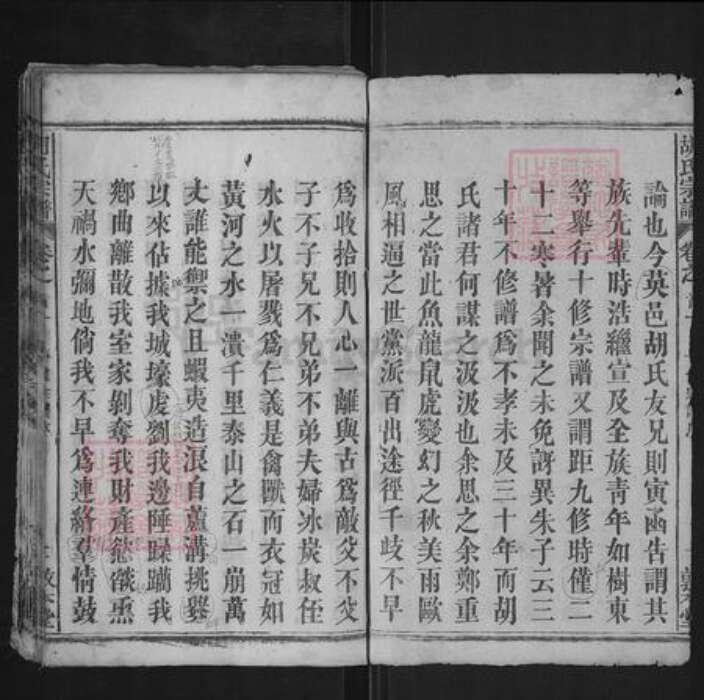 論也今英邑胡氏友兄則寅函告謂其
族先輩時浩繼宣及全族靑年如樹東
等舉行十修宗譜又謂距九修時僅二
十二寒暑余聞之未免訝異朱子云三
十年不修譜爲不孝未及三十年而胡
氏諸君何謀之汲汲也余思之余鄭重
思之當此魚龍鼠虎變幻之秋美雨歐
風相逼之世黨派百出途徑千歧不早
爲收拾則人心一離與古爲敵父不父
子不子兄不兄弟不弟夫婦冰炭叔侄
水火以屠戮爲仁義是禽獸而衣冠如
黃河之水一潰千里泰山之石一崩萬
丈誰能禦之且蝦夷造浪自蘆溝挑釁
以來佔據我城壕虔劉我邊陲蹂躪我
鄕曲離散我室家剝奪我財產慾燄熏
天禍水彌地倘我不早爲連絡羣情鼓
胡氏宗譜
卷之